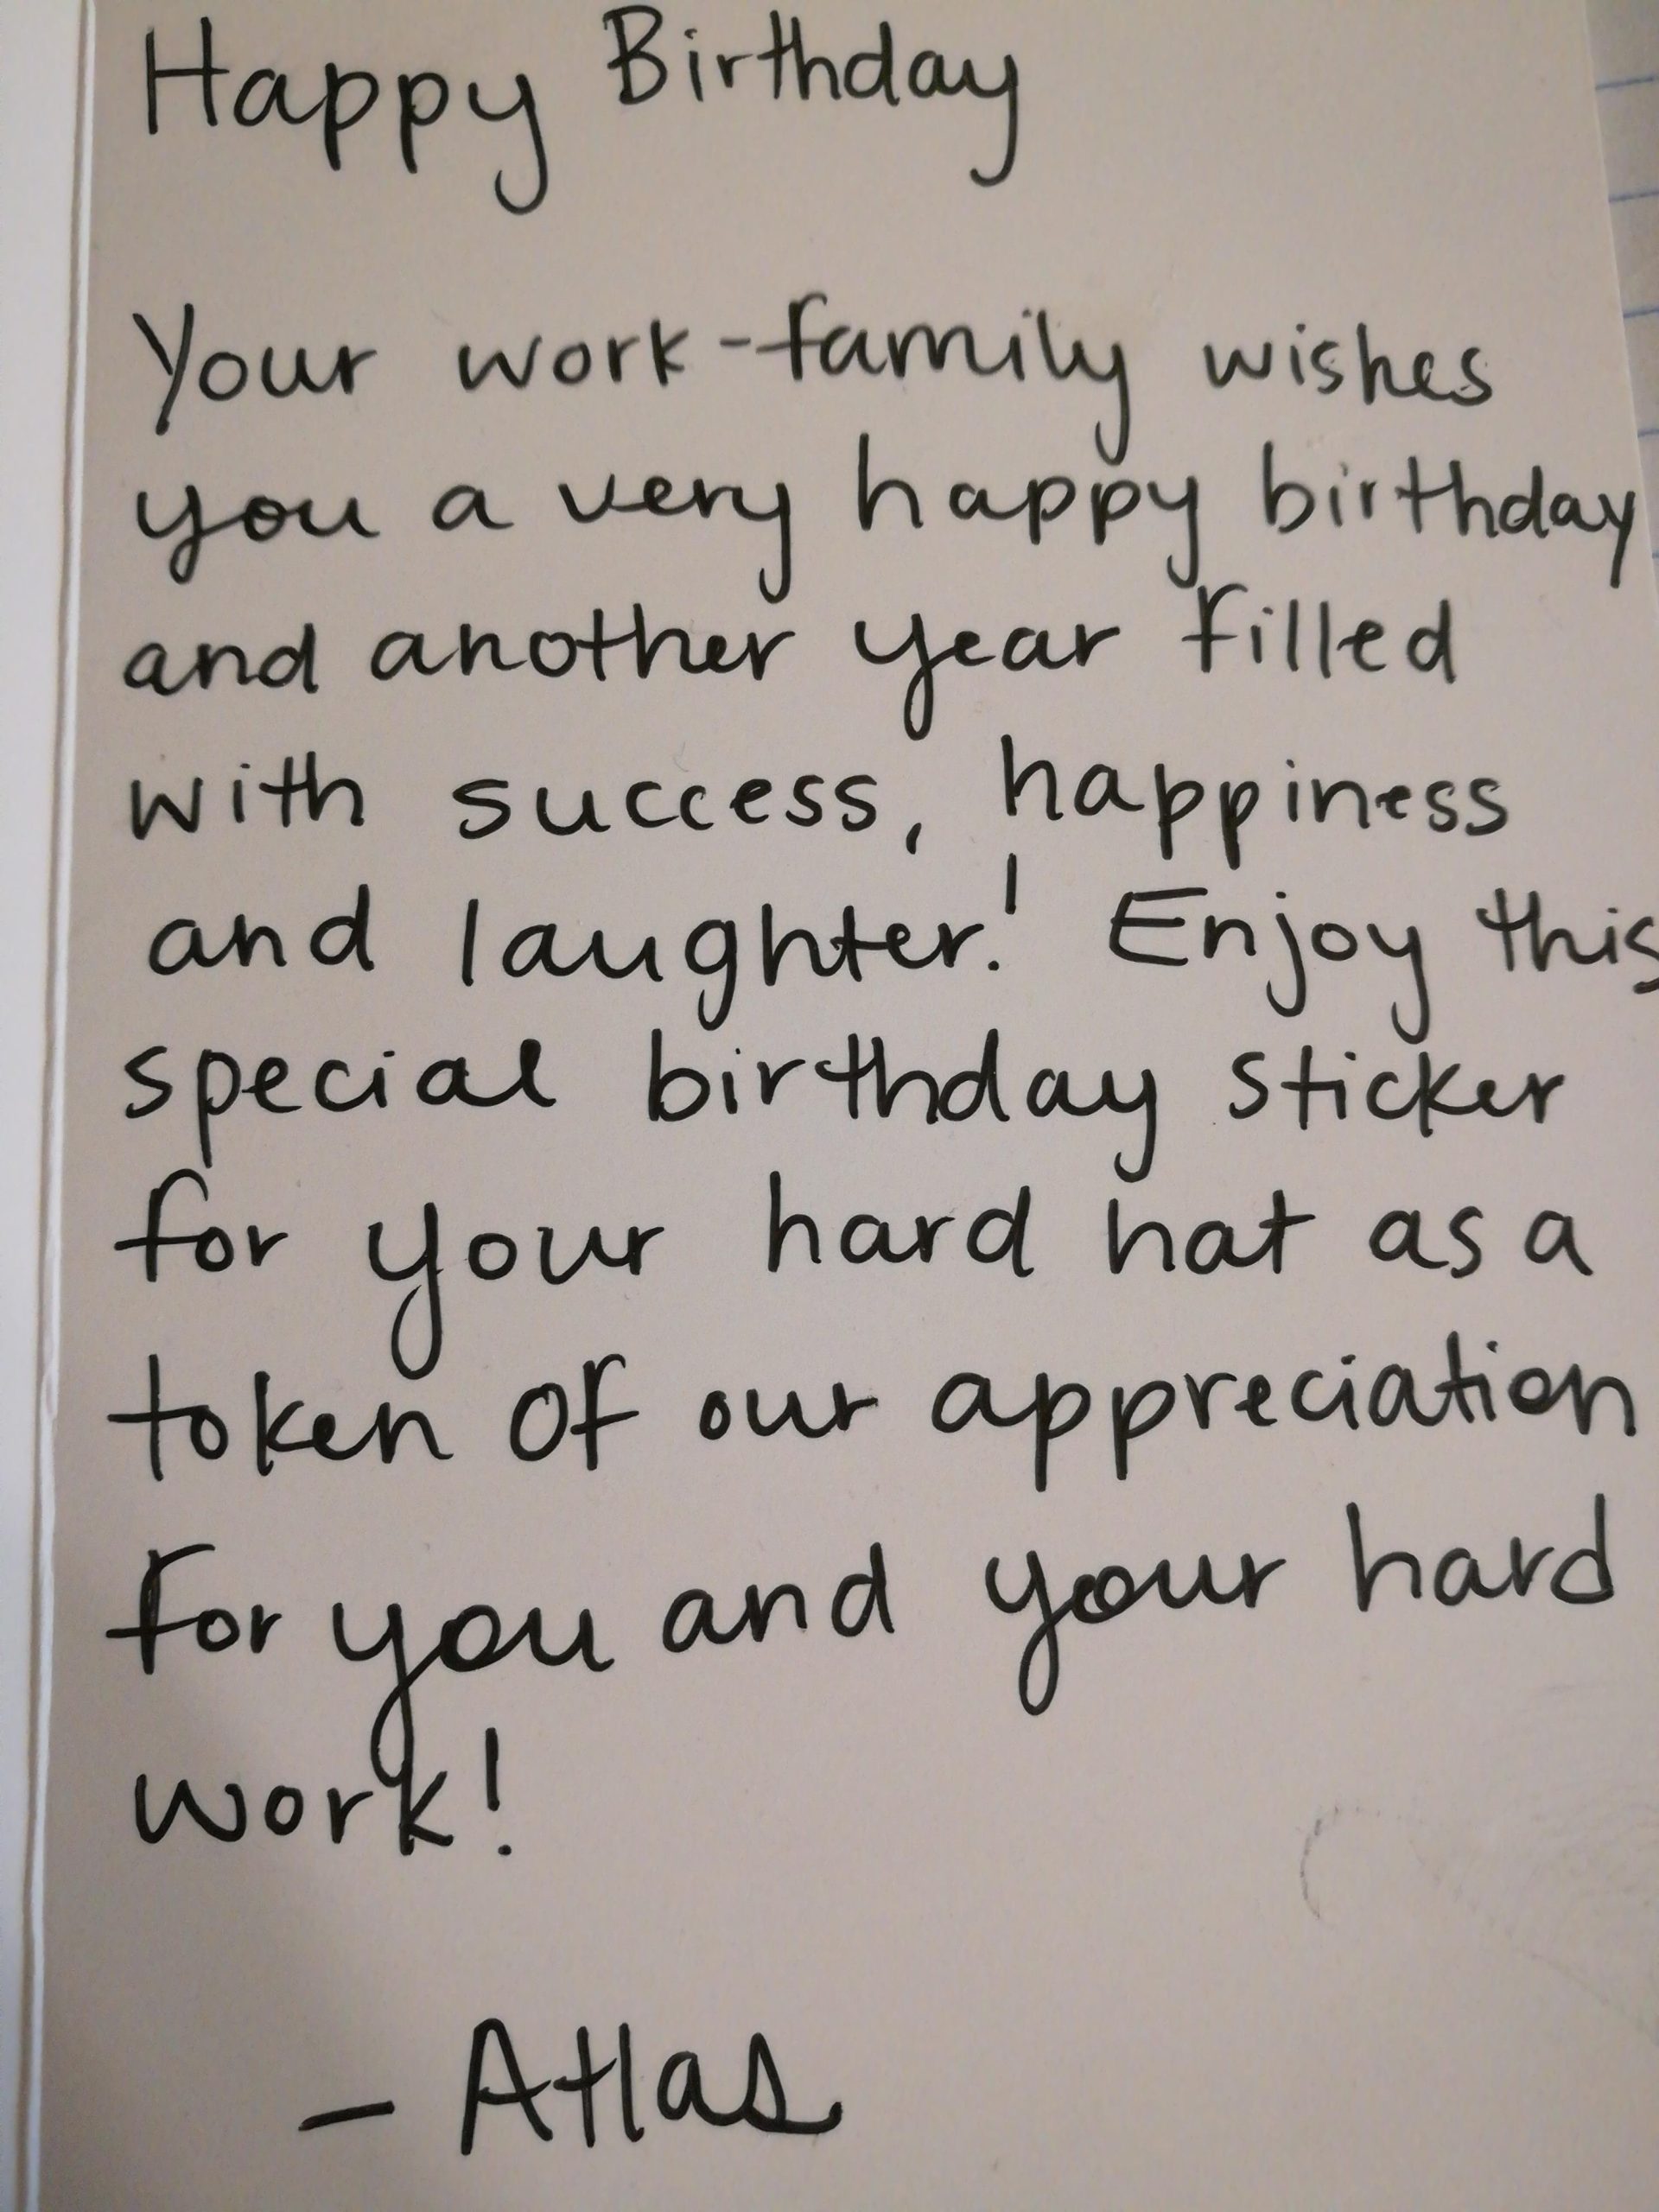 Happy Birthday
Your work-family wishes
you a very happy birthday
and another year filled
with success, happiness
and laughter! Enjoy this
special birthday sticker
for your hard hat as a
token of our appreciation
for you and your hard
work!
- Atlas